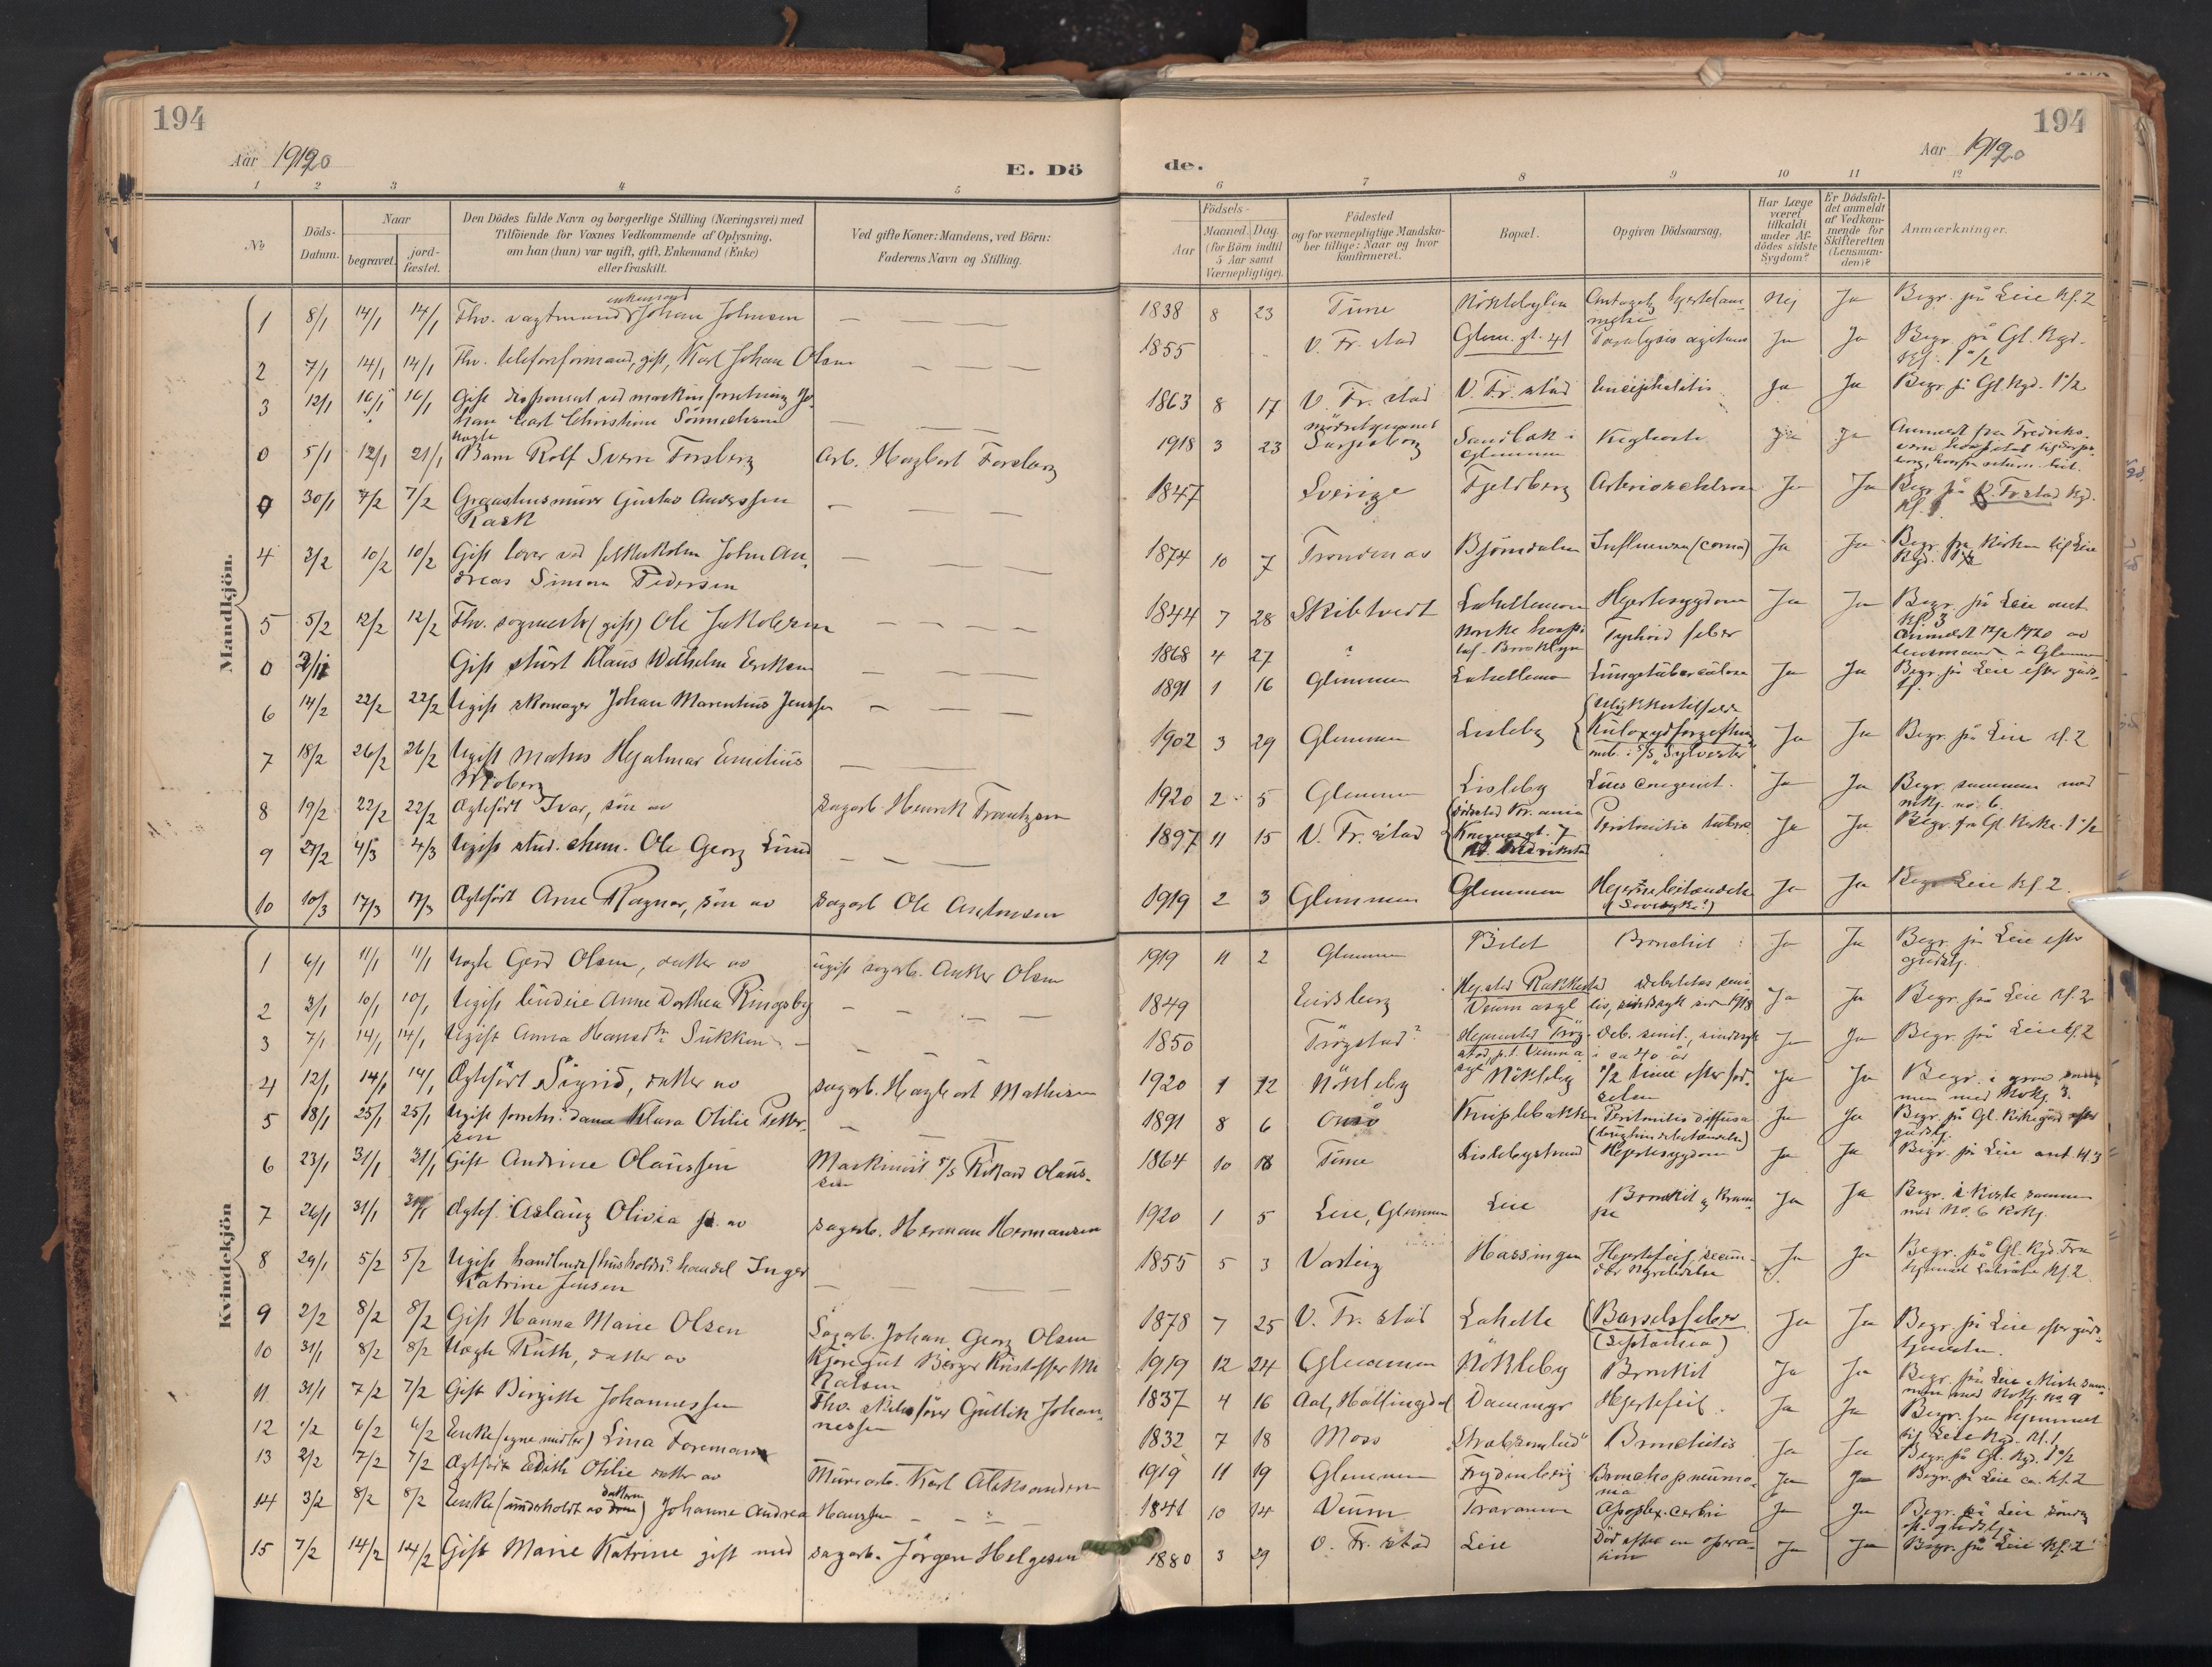 194
Aar 1920
E. Dö
1 2 3 4 5
№
Döds-
Datum.
Naar
begravet.
jord-
fæstet.
Den Dödes fulde Navn og borgerlige Stilling (Næringsvei) med
Tilföiende for Voxnes Vedkommende af Oplysning,
om han (hun) var ugift, gift, Enkemand (Enke)
eller fraskilt.
Ved gifte Koner: Mandens, ved Börn:
Faderens Navn og Stilling.
Mandkjön.
enkemand
1 8/1 14/1 14/1 Fhv. vagtmand Johan Johnsen
2 7/1 14/1 14/1 Fhv. telefonformand, gift, Karl Johan Olsen
3 12/1 16/1 16/1 Gift disponent ved maskinforretning Jo-
han Carl Christian
uægte
0 5/1 12/1 21/1 Barn Rolf Sverre Forsberg Arb. Hagbart Forsberg
0 30/1 7/2 7/2 Graastensmurer Gustav Anderssen
Rask
4 3/2 10/2 10/2 Gift ved John An-
dreas Simon Pedersen
5 5/2 12/2 12/2 Fhv. sagmester (gift) Ole Jakobsen
0 Gift Klaus Wilhelm Eriksen
6 14/2 22/2 22/2 Ugift skomager Johan Marentius Jenssen
7 18/2 26/2 26/2 Ugift matros Hjalmar Emilius
Moberg
8 19/2 22/2 22/2 Ægtefödt Ivar, sön av Sagarb. Henrik Frantzsen
9 27/2 4/3 4/3 Ugift stud. chem. Ole Georg Lund
10 10/3 17/3 17/3 Ægtefödt Arne Ragnar, sön av Sagarb Ole Andersen
Kvindekjön
1 6/1 11/1 11/1 Uægte Gerd Olsen, datter av ugift sagarb. Anker Olsen
2 3/1 10/1 10/1 Ugift Anne Dorthea Ringsby
3 7/1 14/1 14/1 Ugift Anna Hansdtr. Sukken
4 12/1 14/1 14/1 Ægtefödt Sigrid, datter av sagarb. Hagbart Mathisen
5 18/1 25/1 25/1 Ugift forretn. dame Klara Otilie Petter-
sen
6 23/1 31/1 31/1 Gift Andrine Olaussen Maskinist Rikard Olaus-
sen
7 26/1 31/1 31/1 Ægtef. Aslaug Olivia d. av sagarb. Herman Hermansen
8 29/1 5/2 5/2 Ugift handlende/husholdn. handel Inger
Katrine Jensen
9 2/2 8/2 8/2 Gift Hanna Marie Olsen Sagarb. Johan Georg Olsen
10 31/1 8/2 8/2 Uægte Ruth, datter av Kjöregut Birger Kristoffer Mi
kalsen
11 31/1 7/2 7/2 Gift Birgitte Johannessen Fhv. Gullik Johan-
nessen
12 1/2 6/2 6/2 Enke (egne midler) Lina Foreman
13 2/2 7/2 7/2 Ægtefödt Edith Otilie datter av Murerarb. Karl Aleksandersen
datteren
14 3/2 8/2 8/2 Enke (underholdt av ) Johanne Andrea Hanssen
15 7/2 14/2 14/2 Gift Marie Katrine gift med sagarb. Jörgen Helgesen
194
de.
Aar 1920
6 7 8 9 10 11 12
Födsels-
Aar
Maaned. Dag.
(for Börn indtil
5 Aar samt
Værnepligtige).
Födested
og for værnepligtige Mandska-
ber tillige: Naar og hvor
Konfirmeret.
Bopæl.
Opgiven Dödsaarsag.
Har Læge
været
tilkaldt
under Af-
dödes sidste
Sygdom?
Er Dödsfal-
det anmeldt
af Vedkom-
mende for
Skifteretten
(Lensman-
den)?
Anmærkninger.
1838 8 23 Tune Nöklebylien Antagelig hjertelam-
melse Nej Ja Begr. på Leie kl. 2
1855 V. Fr. stad Glem. gt. 41 Paralysis agitans Ja Ja Begr. på Gl. Kgd.
1863 8 17 V. Fr. stad V. Fr. stad Encephalitis Ja Ja Begr. på Gl. Kgd. 1 1/2
1918 3 23 Sarpsborg Sandbak i
Glemmen Kighoste Ja Ja Anmeldt fra Fredriks-
1847 Sverige Fjeldberg Arteriosklerose Ja Ja Begr. på V. Fr.stad Kgd.
1874 10 7 Trondenæs Björndalen Influenza (coma) Ja Ja Begr. fra kirken til Leie
Kgd.
1844 7 28 Skibtvedt Lahellemoen Hjertesygdom Ja Ja Begr. på Leie omt
kl. 3
1868 4 27 ? Norske hospi-
tal Brooklyn Typhoid feber Anmeldt 12/2 1920 av
lensmanden i Glemmen
1891 1 16 Glemmen Lahellemoen Lungetuberculose Ja Ja Begr. på Leie efter guds-
tj.
1902 3 29 Glemmen Lisleby Ulykkestilfælde
Kuloxydforgiftning
omb. i S/S "Sylvester" Ja Ja Begr. på Leie kl. 2
1920 2 5 Glemmen Lisleby Lues congenit. Ja Ja Begr. sammen med
mkj. no. 6.
1897 11 15 V. Fr. stad Dödssted Kr.ania
Ja Ja
1919 2 3 Glemmen Glemmen Hjernebetændelse
(Sovesyke?) Ja Ja Begr. Leie kl. 2.
1919 11 2 Glemmen Bronchit Ja Ja Begr. på Leie efter
gudstj.
1849 Eidsberg Hj.sted Rakkestad
Veum asyl Debilitas seni-
lis, sindssyk siden 1918 Ja Ja Begr. på Leie kl. 2
1850 Trögstad? Hjemsted Trög-
stad, p.t. Veum a-
syl Deb. senil., sindssyk
i ca 40 år Ja Ja Begr. på Leie kl. 2
1920 1 12 Nökleby Nökleby 1/2 time efter föd-
selen Ja Ja Begr. i grav sam-
men med Mkj. 3.
1891 8 6 Onsö Kniplebakken Peritonitis diffusa
Ja Ja Begr. på Gl. Kirkegård efter
gudstj.
1864 10 18 Tune Lislebystrand Hjertesygdom Ja Ja Begr. på Leie omt. kl. 3
1920 1 5 Leie, Glemmen Leie Bronkit og Kram-
pe Ja Ja Begr. i kiste sammen
med No. 6 Kvkj.
1855 5 3 Varteig Hassingen Hjertefeil, secun-
dær Nyrelidelse Ja Ja Begr. på Gl. Kgd. Fra
hjemmet kl. 2
1878 7 25 V. Fr. stad Lahelle Barselfeber
(Septichæmi) Ja Ja Begr. på Leie efter guds-
tjenesten.
1919 12 24 Glemmen Nökleby Bronkit Ja Ja Begr. på Leie i kiste sam-
men med Kvkj. no. 9
1837 4 16 Aal, Hallingdal Dammyr Hjertefeil. Ja Ja Begr. fra hjemmet
til Leie Kgd. kl. 1
1832 7 18 Moss Bronchitis Ja Ja Begr. på Gl. Kgd. 1 1/2
1919 11 19 Glemmen Frydenberg Bronchopneumo-
nia Ja Ja Begr. på Leie ca. kl. 2
1841 10 14 Veum Traraneen Apoplex. cerebri Ja Ja Begr. på Leie söndag
1880 3 29 V. Fr. stad Leie Död efter en opera-
tion Ja Ja Begr. på Leie kl. 2